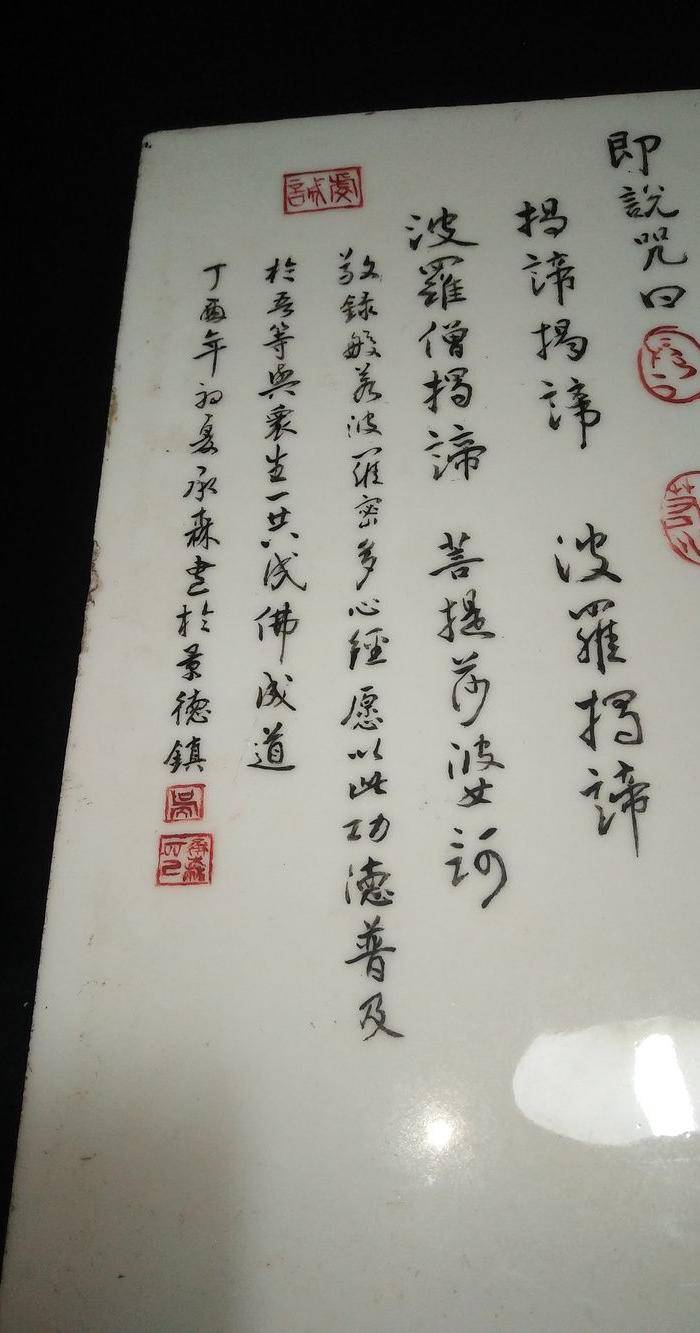 即說咒曰
揭諦揭諦 波羅揭諦
波羅僧揭諦 菩提莎婆訶
虔誠
敬錄般若波羅密多心經愿以此功德普及
於吾等與衆生一共成佛成道
丁酉年初夏承森書於景德鎮
吳
承森印